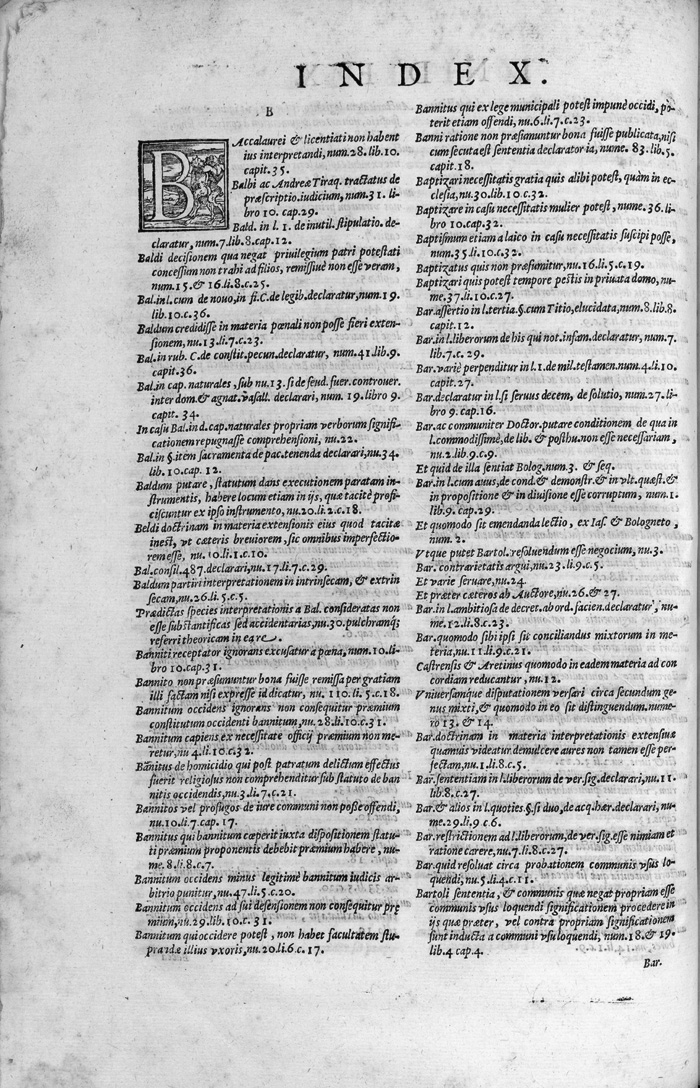 INDEX.
B
BAccalaurei & licentiati non habent
ius interpretandi, num.28. lib.10.
capit.35.
Balbi ac Andreæ Tiraq. tractatus de
præscriptio.iudicium, num.31. li-
bro 10. cap.29.
Bald. in l. 1. de inutil. stipulatio. de-
claratur, num.7.lib.8.cap.12.
Baldi decisionem qua negat priuilegium patri potestati
concessum non trahi ad filios, remissiuè non esse veram,
num.15.& 16.li.8.c.25.
Bal.in l.cum de nouo,in fi.C.de legib.declaratur,num.19.
lib.10.c.36.
Baldum credidisse in materia pœnali non posse fieri exten-
sionem,nu.13.li.7.c.23.
Bal.in rub. C.de constit.pecun.declaratur, num.41.lib.9.
capit.36.
Bal.in cap. naturales, sub nu.13. si de feud. fuer. controuer.
inter dom.& agnat.vasall. declarari, num. 19. libro 9.
capit. 34.
In casu Bal.in d.cap.naturales propriam verborum signifi-
cationem repugnasse comprehensioni, nu.22.
Bal.in §.item sacramenta de pac.tenenda declarari,nu.34.
lib.10.cap.12.
Baldum putare, statutum dans executionem paratam in-
strumentis, habere locum etiam in ijs, quæ tacitè profi-
ciscuntur ex ipso instrumento, nu.20.li.2.c.18.
Beldi doctrinam in materia extensionis eius quod tacitæ
inest, vt cæteris breuiorem, sic omnibus imperfectio-
rem esse, nu.10.li.1.c.10.
Bal.consil.487.declarari,nu.17.li.7.c.29.
Baldum partiri interpretationem in intrinsecam, & extrin
secam,nu.26.li.5.c.5.
Prædictas species interpretationis a Bal. consideratas non
esse substantificas sed accidentarias, nu.30.pulchramq;
referri theoricam in ea re.
Banniti receptator ignorans excusatur a pœna, num.10.li-
bro 10.cap.31.
Bannito non præsumuntur bona fuisse remissa per gratiam
illi factam nisi expresse id dicatur, nu. 110.li.5.c.18.
Bannitum occidens ignorans non consequitur præmium
constitutum occidenti bannitum,nu.28.li.10.c.31.
Bannitum capiens ex necessitate officij præmium non me-
retur,nu 4.li.10.c.32.
Banitus de homicidio qui post patratum delictum effectus
fuerit religiosus non comprehenditur sub statuto de ban
nitis occidendis,nu.3.li.7.c.21.
Bannitos vel profugos de iure communi non posse offendi,
nu.10.li.7.cap.17.
Bannitus qui bannitum cœperit iuxta dispositionem statu-
ti præmium proponentis debebit præmium habere, nu-
me.8.li.8.c.7.
Bannitum occidens minus legitimè bannitum iudicis ar-
bitrio punitur, nu.47.li.5.c.20.
Bannitum occidens ad sui defensionem non consequitur prę
mium,nu.29.lib.10.c.31.
Bannitum qui occidere potest, non habet facultatem stu-
prandæ illius vxoris,nu.20.li.6.c.17.
Bannitus qui ex lege municipali potest impunè occidi, po-
terit etiam offendi, nu.6.li.7.c.23.
Banni ratione non præsumuntur bona fuisse publicata,nisi
cum secuta est sententia declaratoria, nume. 83.lib.5.
capit.18.
Baptizari necessitatis gratia quis alibi potest, quàm in ec-
clesia,nu.30.lib.10.c.32.
Baptizare in casu necessitatis mulier potest, nume.36.li-
bro 10.cap.32.
Baptismum etiam a laico in casu necessitatis suscipi posse,
num.35.li.10.c.32.
Baptizatus quis non præsumitur,nu.16.li.5.c.19.
Baptizari quis potest tempore pestis in priuata domo, nu-
me.37.li.10.c.27.
Bar.assertio in l.tertia.§.cum Titio,elucidata,num.8.lib.8.
capit.12.
Bar.in l.liberorum de his qui not.infam.declaratur,num.7.
lib.7.c.29.
Bar.variè perpenditur in l.1.de mil.testamen.num.4.li.10.
capit.27.
Bar.declaratur in l.si seruus decem, de solutio, num.27.li-
bro 9.cap.16.
Bar.ac communiter Doctor.putare conditionem de qua in
l.commodissimè,de lib. & posthu.non esse necessariam,
nu.2.lib.9.c.9.
Et quid de illa sentiat Bolog.num.3. & seq.
Bar.in l.cum auus,de cond.& demonstr.& in vlt.quæst.&
in propositione & in diuisione esse corruptum, num.1.
lib.9.cap.29.
Et quomodo sit emendanda lectio, ex Ias. & Bologneto,
num.2.
Vtque putet Bartol.resoluendum esse negocium, nu.3.
Bar. contrarietatis argui,nu.23.li.9.c.5.
Et varie seruare,nu.24.
Et præter cæteros ab Auctore,nu.26.& 27.
Bar.in l.ambitiosa de decret.ab ord.facien.declaratur, nu-
me.12.li.8.c.23.
Bar.quomodo sibi ipsi sit conciliandus mixtorum in me-
teria,nu.11.li.9.c.21.
Castrensis & Aretinus quomodo in eadem materia ad con
cordiam reducantur, nu.12.
Vniuersamque disputationem versari circa secundum ge-
nus mixti,& quomodo in eo sit distinguendum,nume-
ro 13. & 14.
Bar.doctrinam in materia interpretationis extensiuæ
quamuis videatur demulcere aures non tamen esse per-
fectam,nu.1.li.8.c.5.
Bar.sententiam in l.liberorum de ver.sig.declarari,nu.11.
lib.8.c.27.
Bar.& alios in l.quoties §.si duo,de acq.hær.declarari,nu-
me.29.li.9 c.6.
Bar.restrictionem ad l.liberorum,de ver.sig.esse nimiam et
ratione carere,nu.7.li.8.c.27.
Bar.quid resoluat circa probationem communis vsus lo-
quendi,nu.5.li.4.c.11.
Bartoli sententia, & communis quæ negat propriam esse
communis vsus loquendi significationem procedere in
ijs quæ præter, vel contra propriam significationem
sunt inducta a communi vsu loquendi, num.18.& 19.
lib.4 cap.4.
Bar.